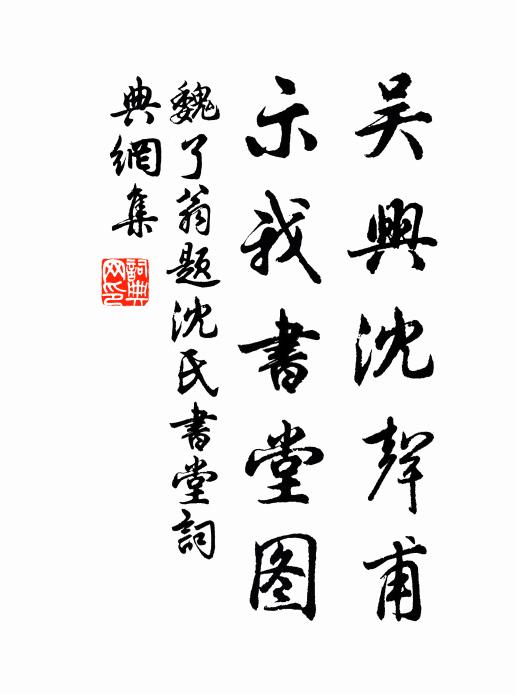 吴興沈聲甫
示我書堂图
魏了翁题沈氏書堂詞
典網集
詞典
网印